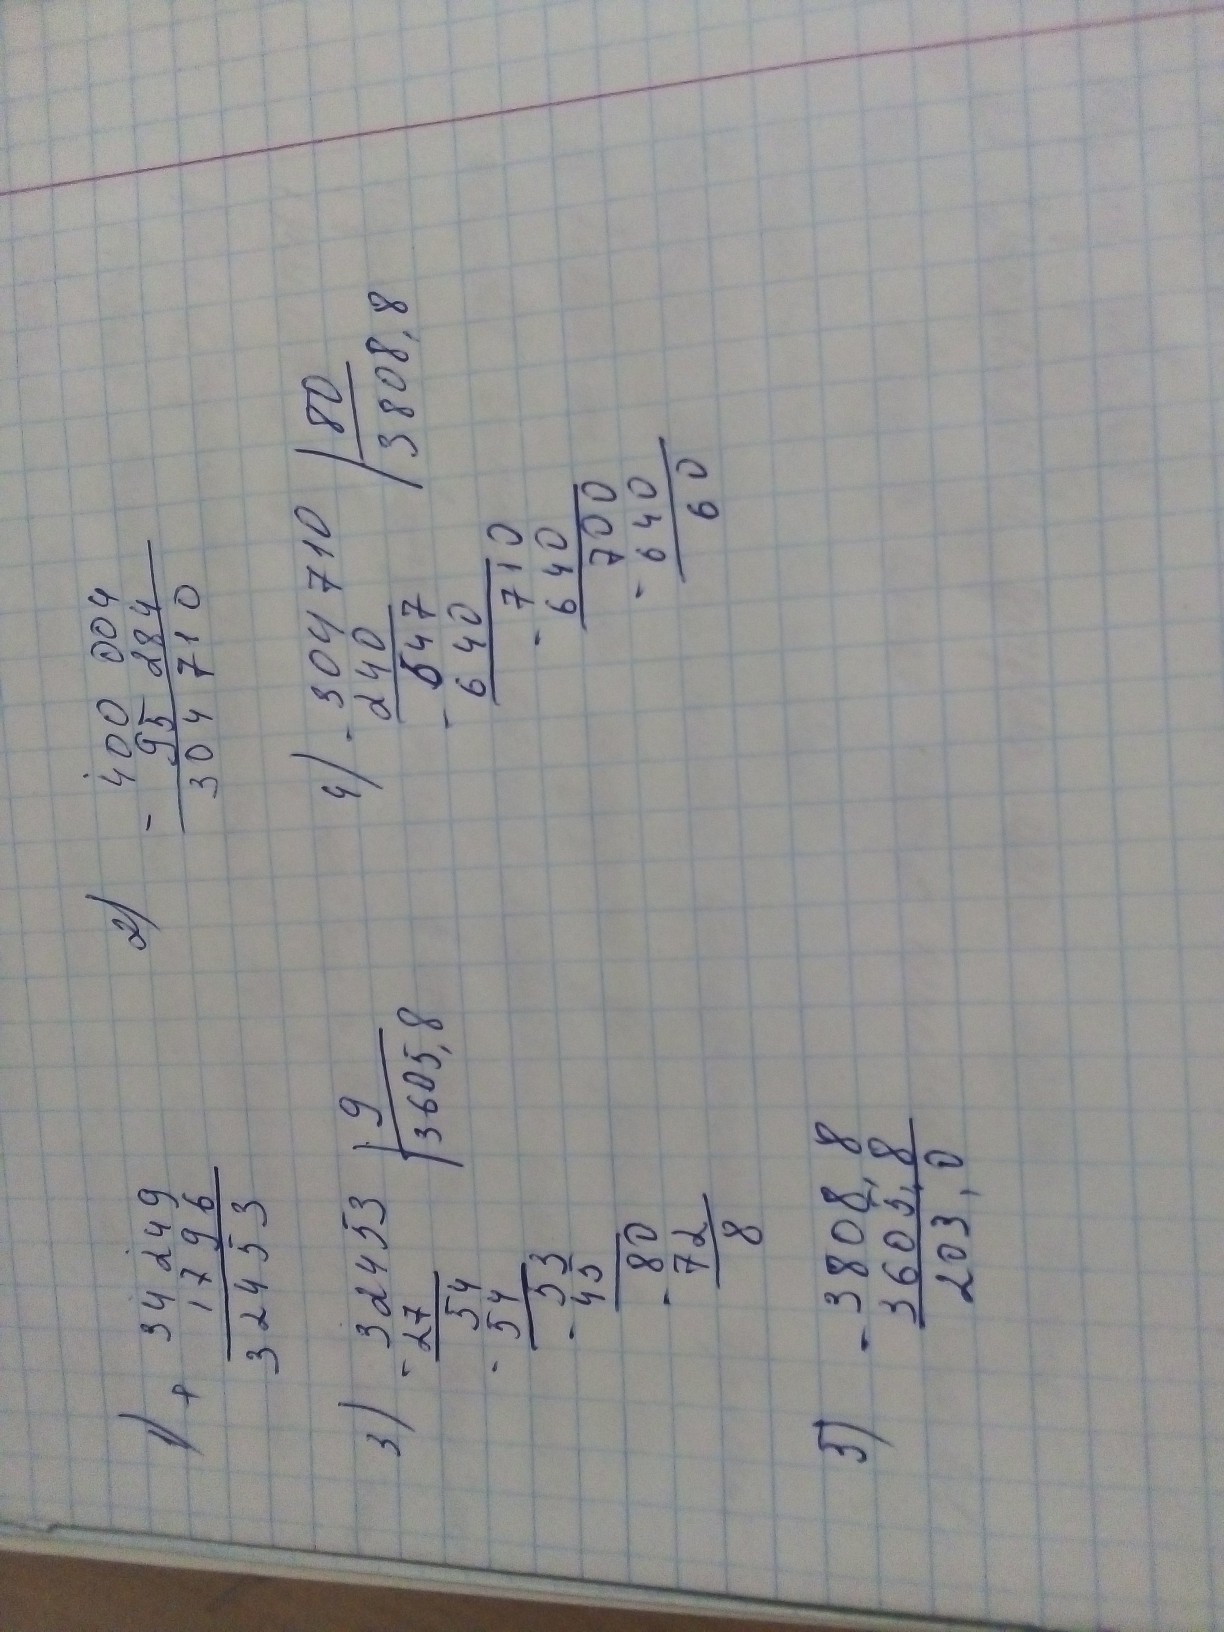 1) + 34 249
1796
32453
2) - 400 004
95 284
304 710
3) - 32453 | 9
27 | 3605,8
54
- 54
- 53
45
- 80
72
8
4) - 304 710 | 80
240 | 3808,8
- 647
640
- 710
640
700
- 640
60
5) - 3808,8
3605,8
203,0